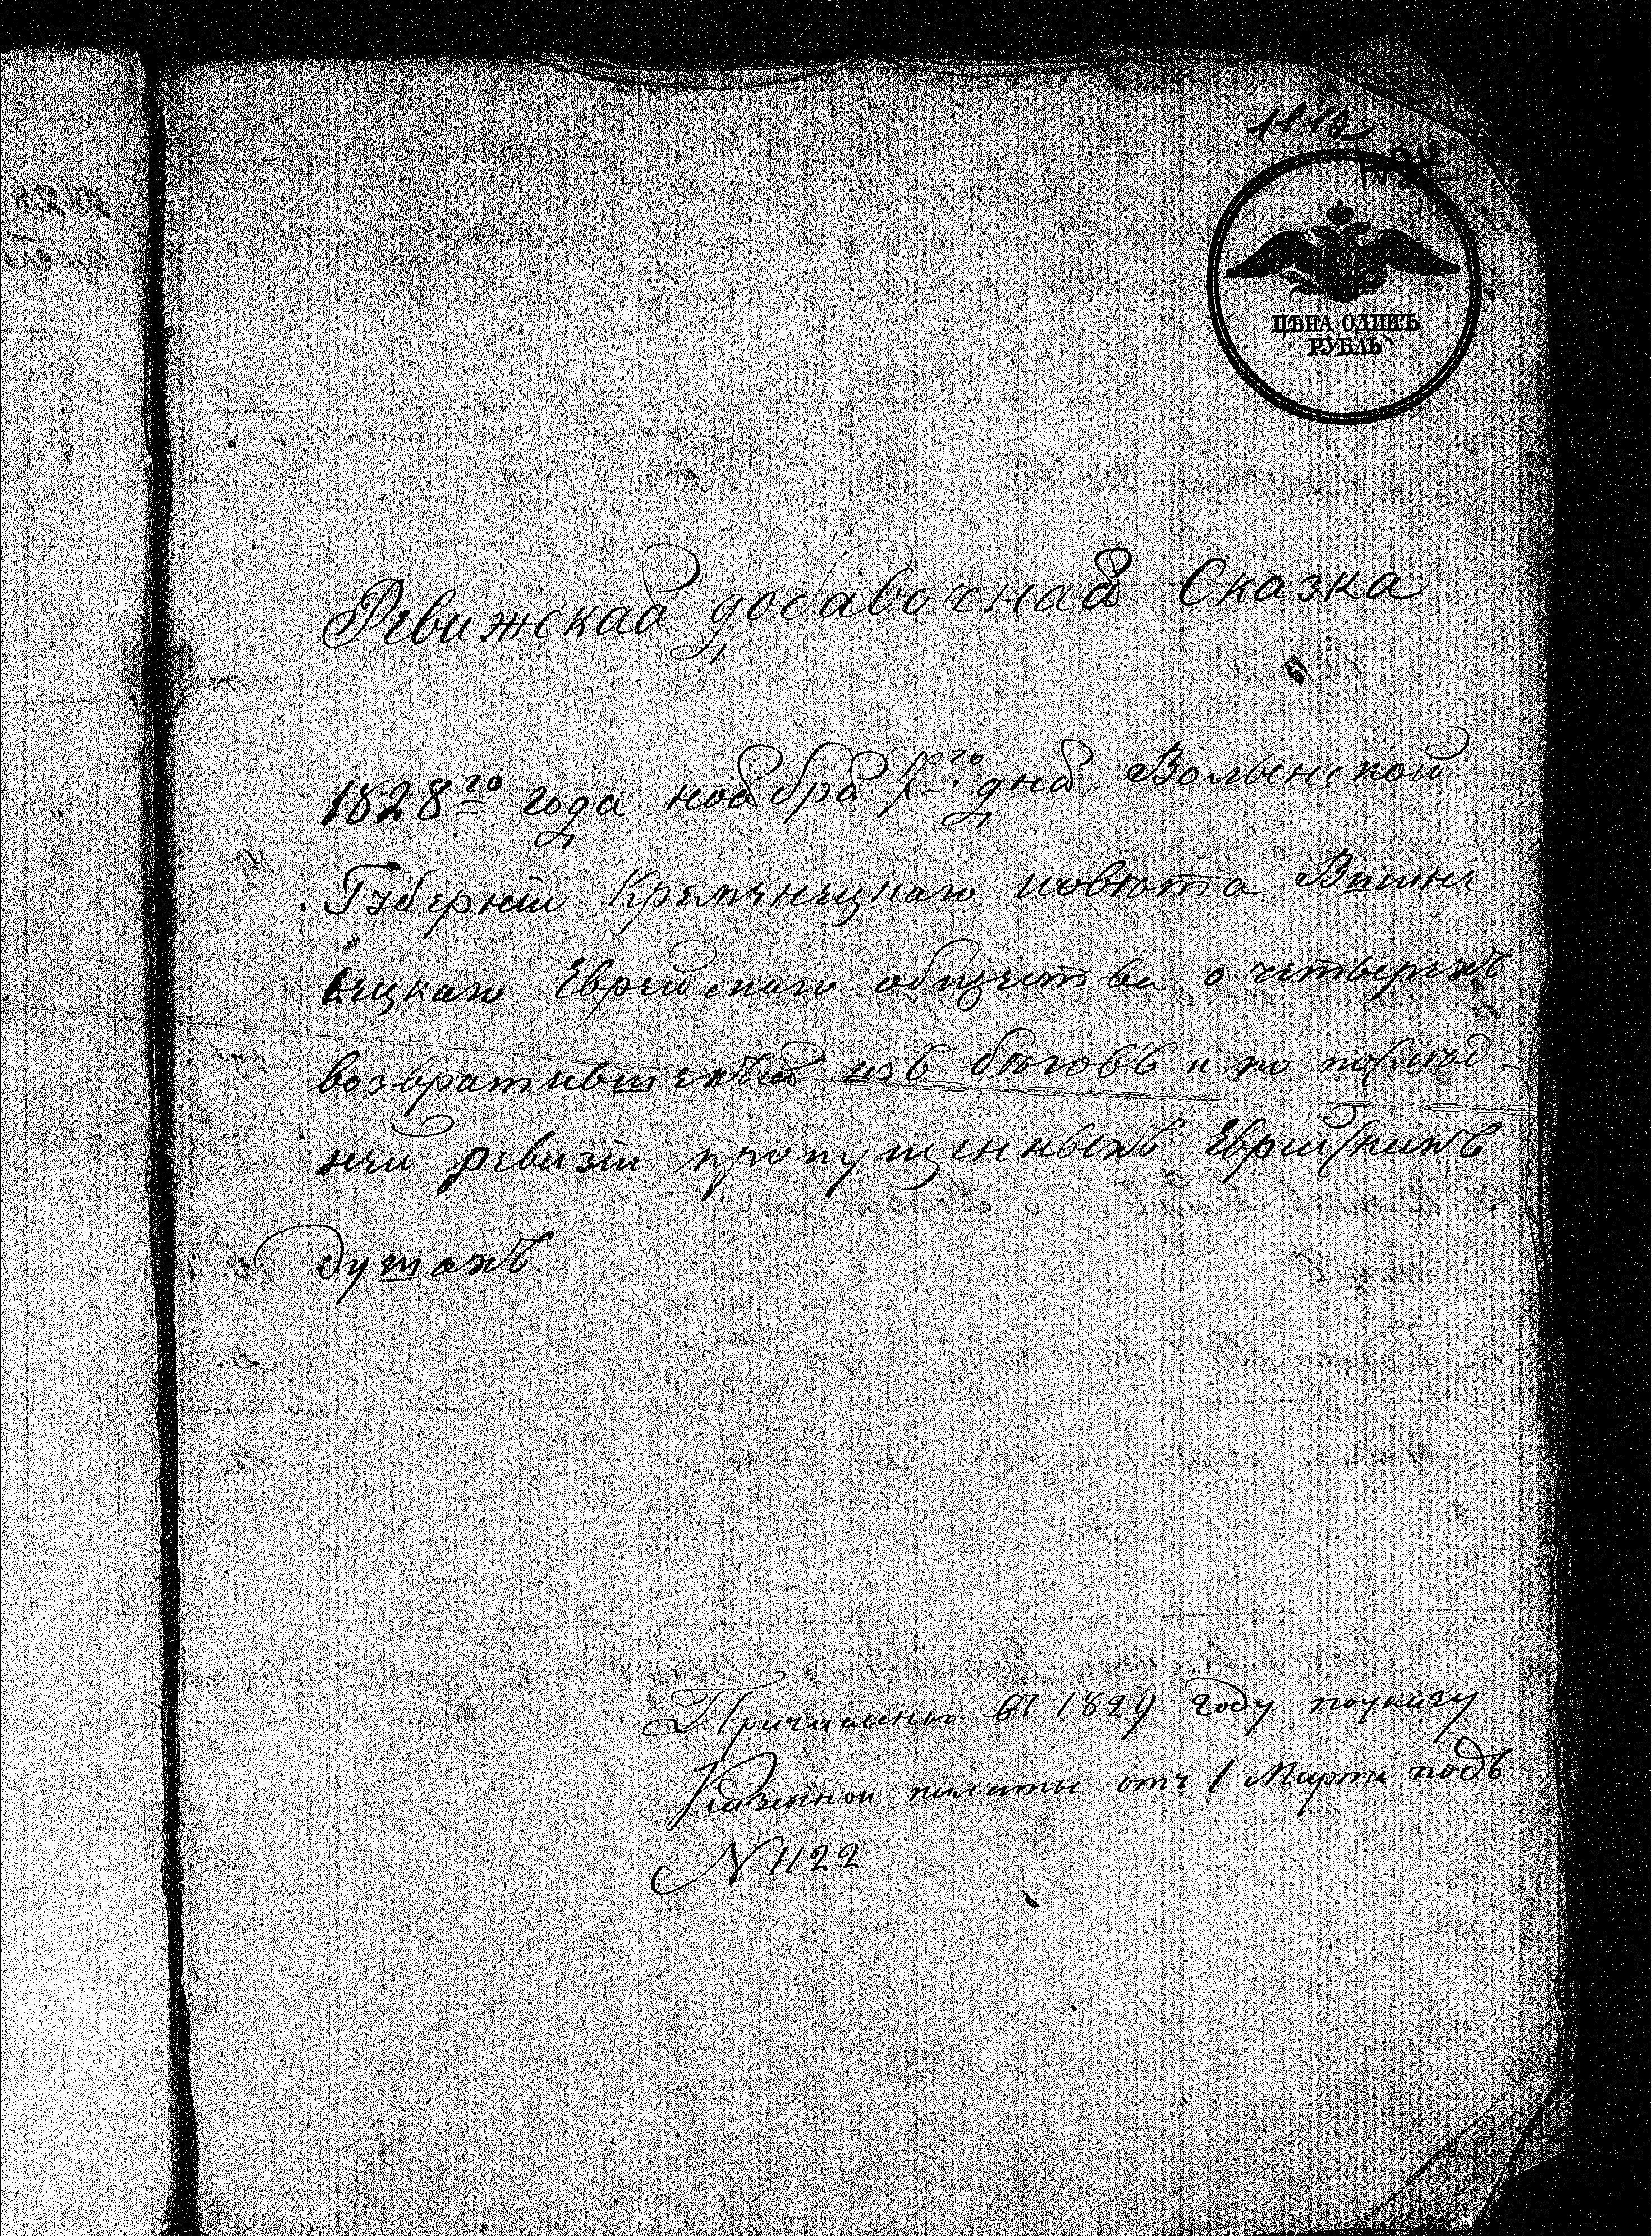 1112
ЦѢНА ОДИНЪ
РУБЛЬ
Ревижская добавочная Сказка
1828го года ноября 7го дня Волынской
Губерніи Кременецкаго повѣта Вишне
вецкаго Еврейскаго общества о четверехъ
возвратившехся изъ бѣговъ и по послѣд-
ней ревизіи пропущенныхъ Еврейскихъ
душахъ.
Причислены въ 1829 году поуказу
Казенной палаты отъ 1 Марта подъ
N 1122